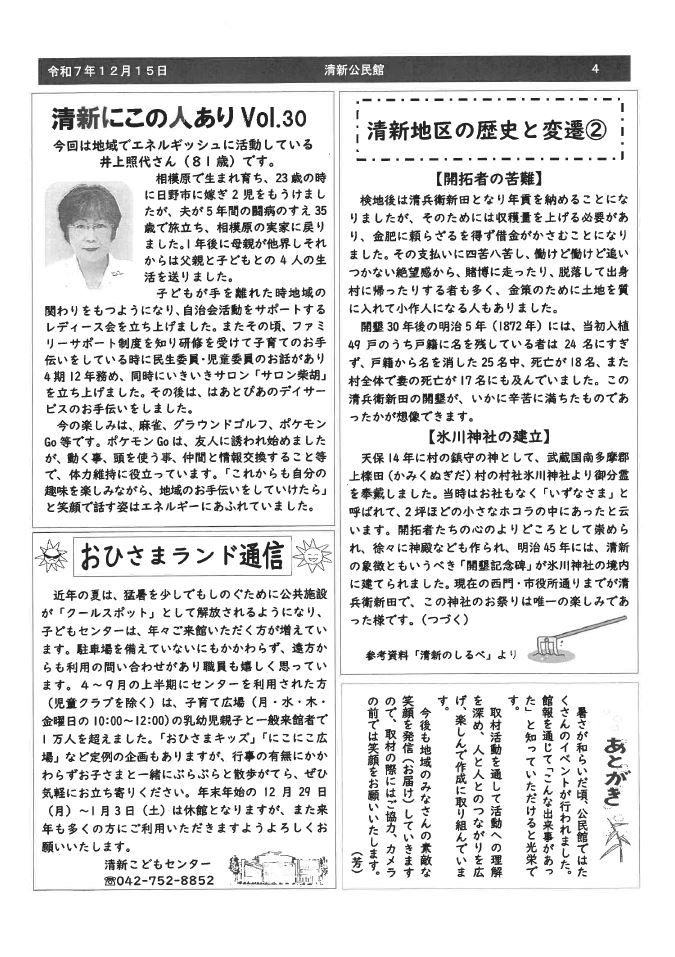 令和7年12月15日
清新公民館
4
清新にこの人あり Vol.30
今回は地域でエネルギッシュに活動している
井上照代さん(81歳)です。
相模原で生まれ育ち、23歳の時
に日野市に嫁ぎ2児をもうけまし
たが、夫が5年間の闘病のすえ35
歳で旅立ち、相模原の実家に戻り
ました。1年後に母親が他界しそれ
からは父親と子どもとの4人の生
活を送りました。
子どもが手を離れた時地域の
関わりをもつようになり、自治会活動をサポートする
レディース会を立ち上げました。またその頃、ファミ
リーサポート制度を知り研修を受けて子育てのお手
伝いをしている時に民生委員・児童委員のお話があり
4期12年務め、同時にいきいきサロン「サロン柴胡」
を立ち上げました。その後は、はあとぴあのデイサー
ビスのお手伝いをしました。
今の楽しみは、麻雀、グラウンドゴルフ、ポケモン
Go等です。ポケモンGoは、友人に誘われ始めました
が、動く事、頭を使う事、仲間と情報交換すること等
で、体力維持に役立っています。「これからも自分の
趣味を楽しみながら、地域のお手伝いをしていけたら」
と笑顔で話す姿はエネルギーにあふれていました。
おひさまランド通信
近年の夏は、猛暑を少しでもしのぐために公共施設
が「クールスポット」として解放されるようになり、
子どもセンターは、年々ご来館いただく方が増えてい
ます。駐車場を備えていないにもかかわらず、遠方か
らも利用の問い合わせがあり職員も嬉しく思ってい
ます。4~9月の上半期にセンターを利用された方
(児童クラブを除く)は、子育て広場(月・水・木・
金曜日の10:00~12:00)の乳幼児親子と一般来館者で
1万人を超えました。「おひさまキッズ」「にこにこ広
場」など定例の企画もありますが、行事の有無にかか
わらずお子さまと一緒にぶらぶらと散歩がてら、ぜひ
気軽にお立ち寄りください。年末年始の12月29日
(月)~1月3日(土)は休館となりますが、また来
年も多くの方にご利用いただきますようよろしくお
願いいたします。
清新こどもセンター
☎042-752-8852
清新地区の歴史と変遷②
【開拓者の苦難】
検地後は清兵衛新田となり年貢を納めることにな
りましたが、そのためには収穫量を上げる必要があ
り、金肥に頼らざるを得ず借金がかさむことになり
ました。その支払いに四苦八苦し、働けど働けど追い
つかない絶望感から、賭博に走ったり、脱落して出身
村に帰ったりする者も多く、金策のために土地を質
に入れて小作人になる人もありました。
開墾30年後の明治5年(1872年)には、当初入植
49戸のうち戸籍に名を残している者は24名にすぎ
ず、戸籍から名を消した25名中、死亡が18名、また
村全体で妻の死亡が17名にも及んでいました。この
清兵衛新田の開墾が、いかに辛苦に満ちたものであ
ったかが想像できます。
【氷川神社の建立】
天保14年に村の鎮守の神として、武蔵国南多摩郡
上椚田(かみくぬぎだ)村の村社氷川神社より御分霊
を奉戴しました。当時はお社もなく「いずなさま」と
呼ばれて、2坪ほどの小さなホコラの中にあったと云
います。開拓者たちの心のよりどころとして崇めら
れ、徐々に神殿なども作られ、明治45年には、清新
の象徴ともいうべき「開墾記念碑」が氷川神社の境内
に建てられました。現在の西門・市役所通りまでが清
兵衛新田で、この神社のお祭りは唯一の楽しみであ
った様です。(つづく)
参考資料「清新のしるべ」より
あとがき
暑さが和らいだ頃、公民館ではた
くさんのイベントが行われました。
館報を通じて「こんな出来事があっ
た」と知っていただけると光栄で
す。
取材活動を通して活動への理解
を深め、人と人とのつながりを広
げ、楽しんで作成に取り組んでいま
す。
今後も地域のみなさんの素敵な
笑顔を発信(お届け)していきます
ので、取材の際にはご協力、カメラ
の前では笑顔をお願いいたします。
(芳)